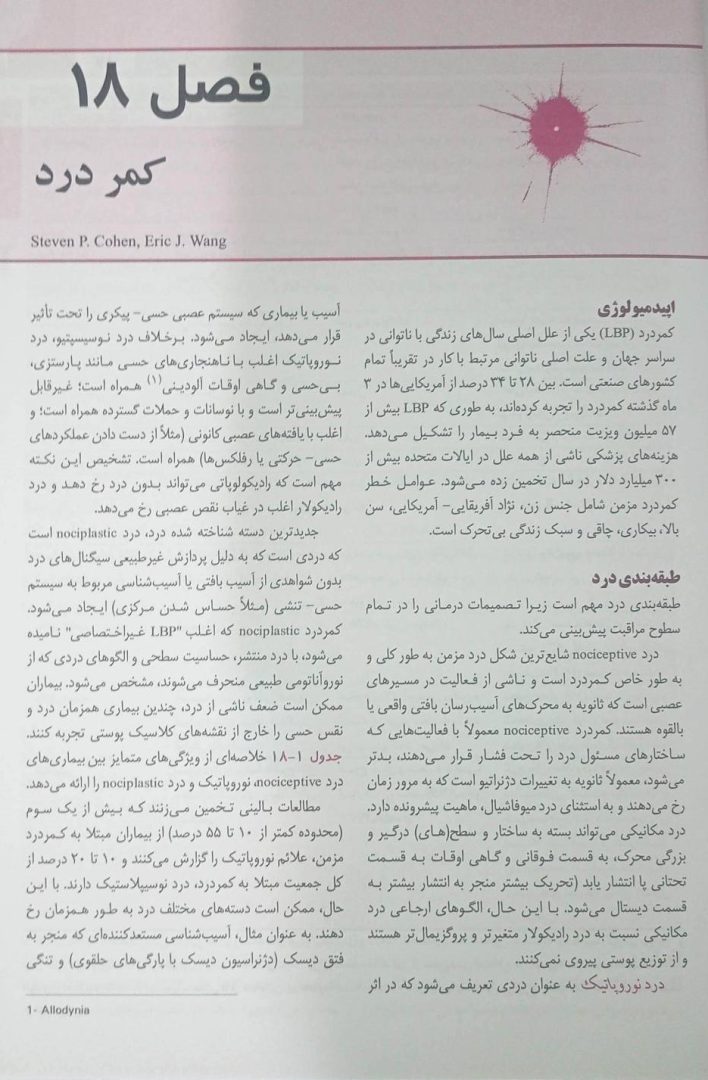 فصل ۱۸
کمر درد
Steven P. Cohen, Eric J. Wang
اپیدمیولوژی
کمردرد (LBP) یکی از علل اصلی سال‌های زندگی با ناتوانی در
سراسر جهان و علت اصلی ناتوانی مرتبط با کار در تقریباً تمام
کشورهای صنعتی است. بین ۲۸ تا ۳۴ درصد از آمریکایی‌ها در ۳
ماه گذشته کمردرد را تجربه کرده‌اند، به طوری که LBP بیش از
۵۷ میلیون ویزیت منحصر به فرد بیمار را تشکیل می‌دهد.
هزینه‌های پزشکی ناشی از همه علل در ایالات متحده بیش از
۳۰۰ میلیارد دلار در سال تخمین زده می‌شود. عوامل خطر
کمردرد مزمن شامل جنس زن، نژاد آفریقایی- آمریکایی، سن
بالا، بیکاری، چاقی و سبک زندگی بی‌تحرک است.
طبقه‌بندی درد
طبقه‌بندی درد مهم است زیرا تصمیمات درمانی را در تمام
سطوح مراقبت پیش‌بینی می‌کند.
درد nociceptive شایع‌ترین شکل درد مزمن به طور کلی و
به طور خاص کمردرد است و ناشی از فعالیت در مسیرهای
عصبی است که ثانویه به محرک‌های آسیب‌رسان بافتی واقعی یا
بالقوه هستند. کمردرد nociceptive معمولاً با فعالیت‌هایی که
ساختارهای مسئول درد را تحت فشار قرار می‌دهند، بدتر
می‌شود، معمولاً ثانویه به تغییرات دژنراتیو است که به مرور زمان
رخ می‌دهند و به استثنای درد میوفاشیال، ماهیت پیشرونده دارد.
درد مکانیکی می‌تواند بسته به ساختار و سطح(های) درگیر و
بزرگی محرک، به قسمت فوقانی و گاهی اوقات به قسمت
تحتانی پا انتشار یابد (تحریک بیشتر منجر به انتشار بیشتر به
قسمت دیستال می‌شود. با این حال، الگوهای ارجاعی درد
مکانیکی نسبت به درد رادیکولار متغیرتر و پروگزیمال‌تر هستند
و از توزیع پوستی پیروی نمی‌کنند.
درد نوروپاتیک به عنوان دردی تعریف می‌شود که در اثر
آسیب یا بیماری که سیستم عصبی حسی- پیکری را تحت تأثیر
قرار می‌دهد، ایجاد می‌شود. برخلاف درد نوسیسپتیو، درد
نوروپاتیک اغلب با ناهنجاری‌های حسی مانند پارستزی،
بی‌حسی و گاهی اوقات آلودینی(۱) همراه است؛ غیرقابل
پیش‌بینی‌تر است و با نوسانات و حملات گسترده همراه است؛ و
اغلب با یافته‌های عصبی کانونی (مثلاً از دست دادن عملکردهای
حسی- حرکتی یا رفلکس‌ها) همراه است. تشخیص این نکته
مهم است که رادیکولوپاتی می‌تواند بدون درد رخ دهد و درد
رادیکولار اغلب در غیاب نقص عصبی رخ می‌دهد.
جدیدترین دسته شناخته شده درد، درد nociplastic است
که دردی است که به دلیل پردازش غیرطبیعی سیگنال‌های درد
بدون شواهدی از آسیب بافتی یا آسیب‌شناسی مربوط به سیستم
حسی- تنشی (مثلاً حساس شدن مرکزی) ایجاد می‌شود.
کمردرد nociplastic که اغلب "LBP غیراختصاصی" نامیده
می‌شود، با درد منتشر، حساسیت سطحی و الگوهای دردی که از
نوروآناتومی طبیعی منحرف می‌شوند، مشخص می‌شود. بیماران
ممکن است ضعف ناشی از درد، چندین بیماری همزمان درد و
نقس حسی را خارج از نقشه‌های کلاسیک پوستی تجربه کنند.
جدول ۱-۱۸ خلاصه‌ای از ویژگی‌های متمایز بین بیماری‌های
درد nociceptive، نوروپاتیک و درد nociplastic را ارائه می‌دهد.
مطالعات بالینی تخمین می‌زنند که بیش از یک سوم
(محدوده کمتر از ۱۰ تا ۵۵ درصد) از بیماران مبتلا به کمردرد
مزمن، علائم نوروپاتیک را گزارش می‌کنند و ۱۰ تا ۲۰ درصد از
کل جمعیت مبتلا به کمردرد، درد نوسیپلاستیک دارند. با این
حال، ممکن است دسته‌های مختلف درد به طور همزمان رخ
دهند. به عنوان مثال، آسیب‌شناسی مستعدکننده‌ای که منجر به
فتق دیسک (دژنراسیون دیسک با پارگی‌های حلقوی) و تنگی
1- Allodynia